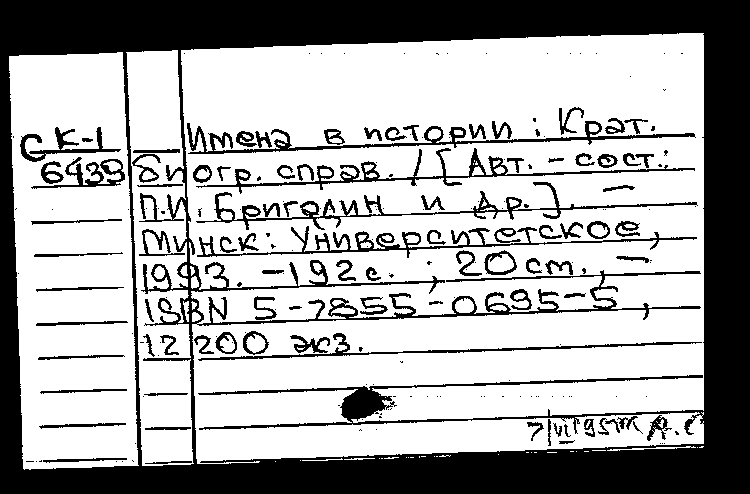 С К-1
6439
Имена в истории : Крат.
биогр. справ. / [Авт. - сост.:
П.И. Бригадин и др.]. —
Минск: Университетское,
1993. - 192 с. ; 20 cm., —
ISBN 5-7855-0695-5,
12 200 экз.
7/VI 95